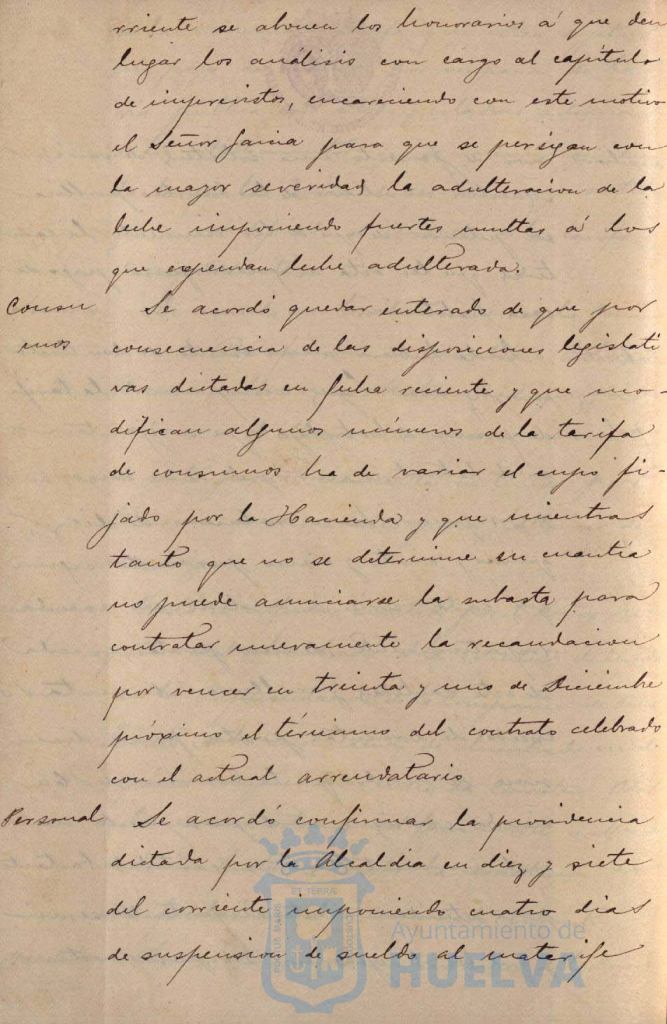 rriente se abonen los honorarios á que den
lugar los análisis con cargo al capítulo
de imprevistos, encareciendo con este motivo
el Señor para que se persigan con
la mayor severidad la adulteracion de la
leche imponiendo fuertes multas á los
que expendan leche adulterada.
Consu
mos
Se acordó quedar enterado de que por
consecuencia de las disposiciones legislati
vas dictadas en fecha reciente y que mo-
difican algunos números de la tarifa
de consumos ha de variar el cupo fi-
jado por la Hacienda y que mientras
tanto que no se determine su cuantía
no puede anunciarse la subasta para
contratar nuevamente la recaudacion
por vencer en treinta y uno de Diciembre
próximo el término del contrato celebrado
con el actual arrendatario
Personal
Se acordó confirmar la providencia
dictada por la Alcaldia en diez y siete
del corriente imponiendo cuatro dias
de suspension de sueldo al matarife
Ayuntamiento de
HUELVA